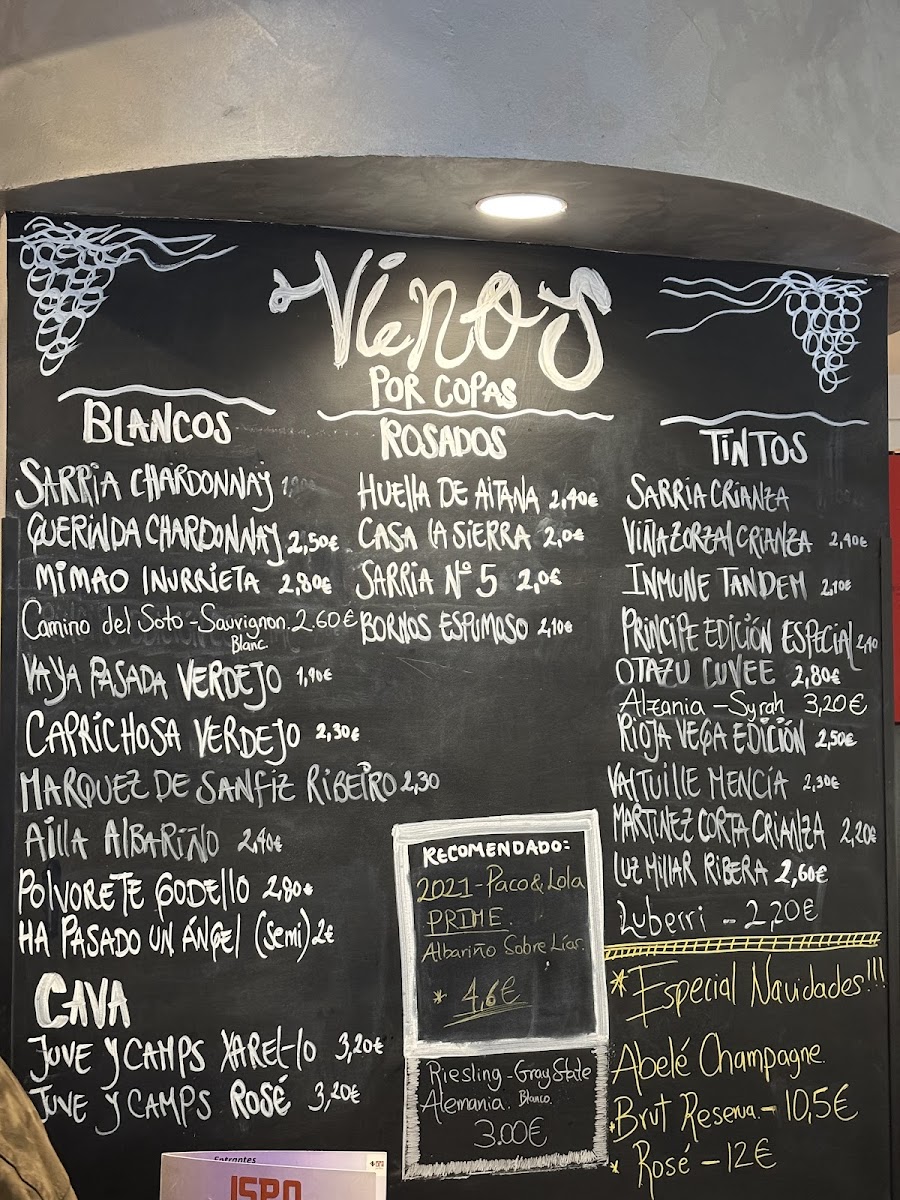 Vinos
POR COPAS
BLANCOS
SARRIA CHARDONNAY
QUERINDA CHARDONNAY 2,50€
MIMAO INURRIETA 2,80€
Camino del Soto - Sauvignon. 2.60€
Blanc.
VAYA PASADA VERDEJO 1,90€
CAPRICHOSA VERDEJO 2,30€
MARQUEZ DE SANFIZ RIBEIRO 2,30
AILLA ALBARIÑO 2,40€
POLVORETE GODELLO 2,80€
HA PASADO UN ÁNGEL (Semi) 2€
CAVA
JUVE Y CAMPS XAREL-LO 3,20€
JUVE Y CAMPS ROSÉ 3,20€
ROSADOS
HUELLA DE AITANA 2,40€
CASA LA SIERRA 2,0€
SARRIA Nº 5 2,0€
BORNOS ESPUMOSO 2,10€
RECOMENDADO:
2021 - Paco & Lola
PRIME.
Albariño Sobre Lías.
* 4,6€
Riesling - Gray State
Alemania. Blanco.
3.00€
TINTOS
SARRIA CRIANZA
VIÑA ZORZAL CRIANZA 2,40€
INMUNE TANDEM 2,10€
PRINCIPE EDICIÓN ESPECIAL 2,40
OTAZU CUVEE 2,80€
Alzania - Syrah 3,20€
RIOJA VEGA EDICIÓN 2,50€
VALTUILLE MENCÍA 2,30€
MARTINEZ CORTA CRIANZA 2,20€
LUZ MILLAR RIBERA 2,60€
Luberri - 2,20€
* Especial Navidades!!!
Abelé Champagne.
* Brut Reserva. - 10,5€
* Rosé - 12€
Entrantes